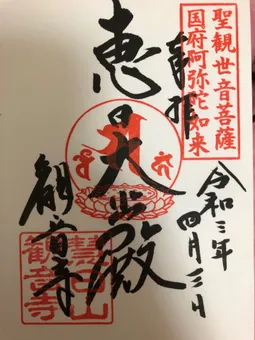 聖観世音菩薩
国府阿弥陀如来
奉拝
令和三年
四月三日
恵日大悲殿
観音寺
慧日山
観音寺